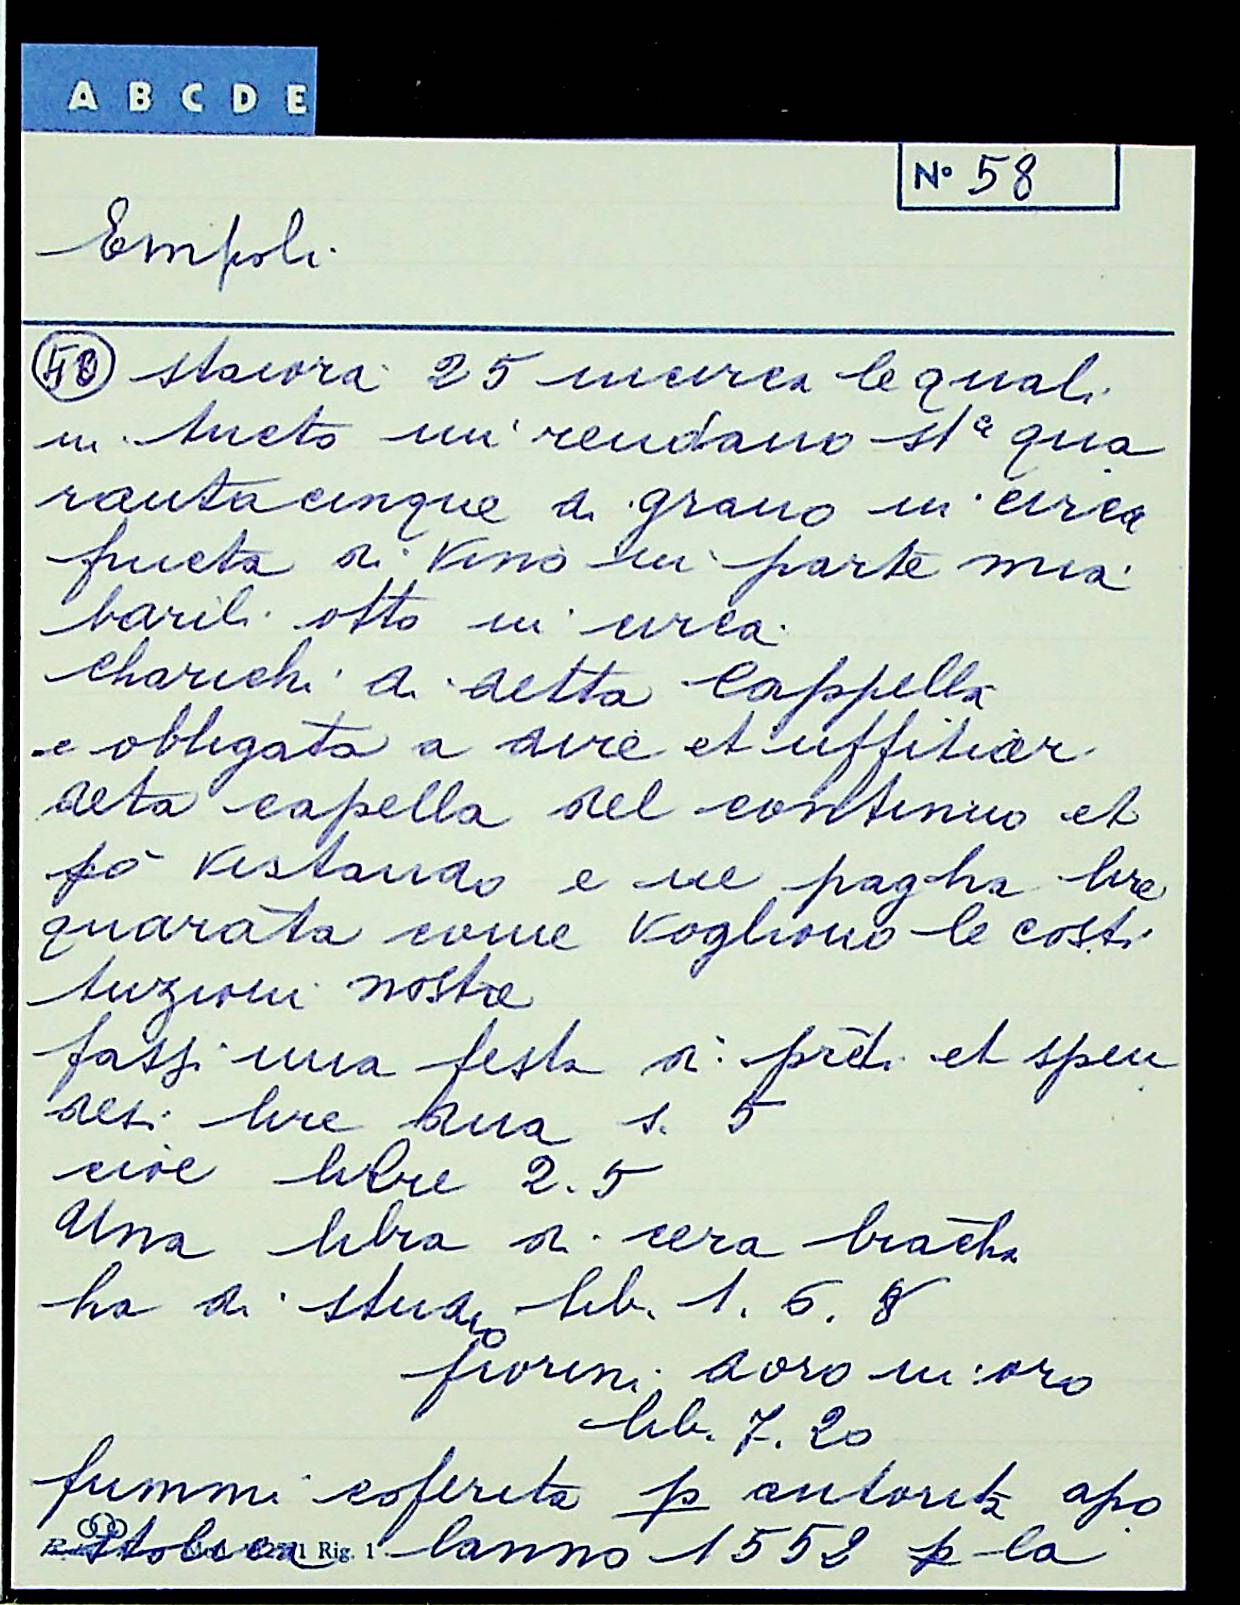 A B C D E
N° 58
Empoli
staiora 25 incirca le quali
in tucto mi rendano st.ª qua
rantacinque di grano in circa
fructa di vino in parte mia
barili otto in circa
charichi di detta Cappella
e obligata a dire et uffitiar
deta capella del continuo et
pō vestando e ne pagha lire
quarāta come vogliono le costi
tuzioni nostre
fassi una festa di prēti et spen
desi lire dua s. 5
cioè libre 2.5
Una libra di cera biācha
ha di studio lib. 1. 6. 8
fiorini doro in oro
lib. 7. 20
fummi coferita p autorita apo
stolica lanno 1552 p la
Rig. 1